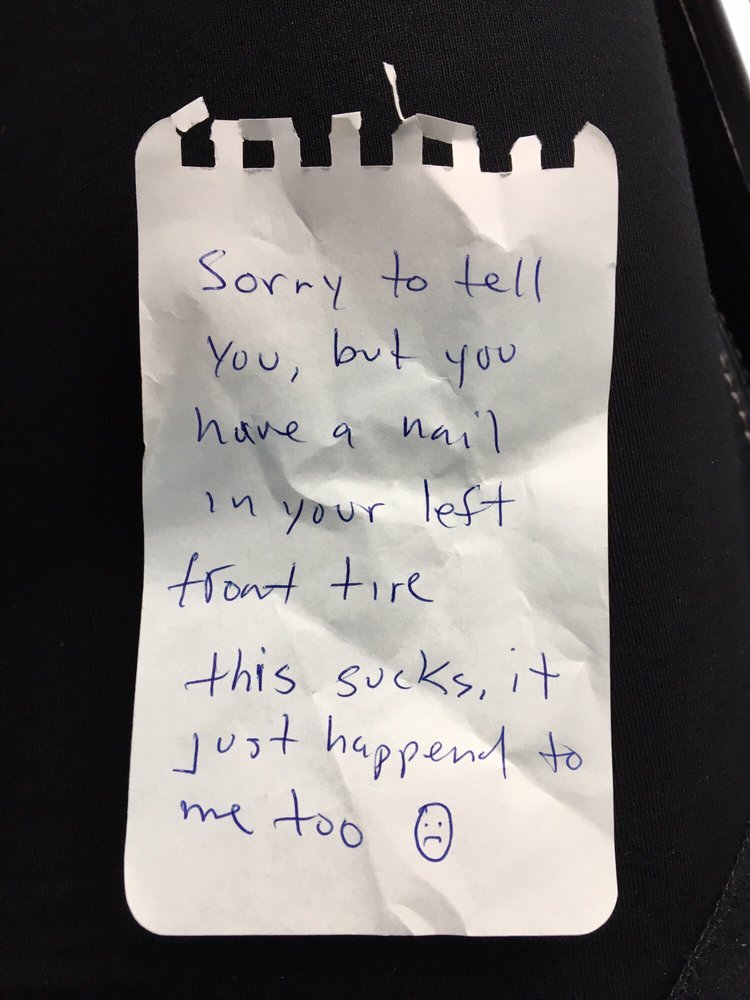 Sorry to tell
you, but you
have a nail
in your left
front tire
this sucks, it
just happend to
me too ☹